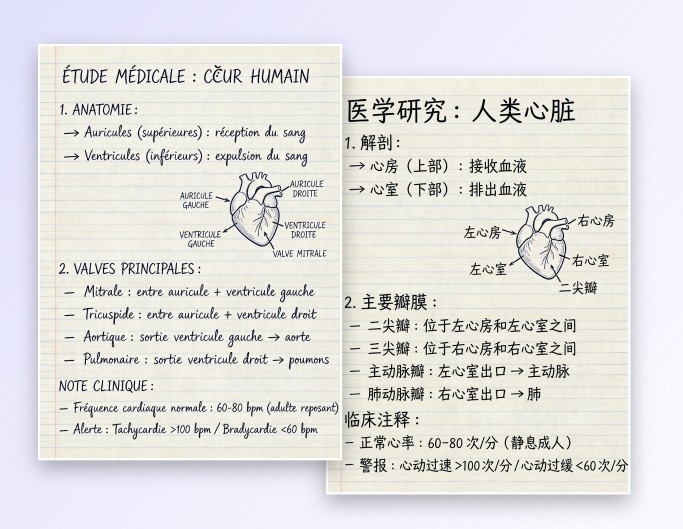 ÉTUDE MÉDICALE : CŒUR HUMAIN
1. ANATOMIE:
→ Auricules (supérieures) : réception du sang
→ Ventricules (inférieurs) : expulsion du sang
AURICULE GAUCHE
AURICULE DROITE
VENTRICULE GAUCHE
VENTRICULE DROITE
VALVE MITRALE
2. VALVES PRINCIPALES:
– Mitrale : entre auricule + ventricule gauche
– Tricuspide : entre auricule + ventricule droit
– Aortique : sortie ventricule gauche → aorte
– Pulmonaire : sortie ventricule droit → poumons
NOTE CLINIQUE:
– Fréquence cardiaque normale : 60-80 bpm (adulte reposant)
– Alerte : Tachycardie >100 bpm / Bradycardie <60 bpm
医学研究：人类心脏
1. 解剖：
→ 心房（上部）：接收血液
→ 心室（下部）：排出血液
左心房
右心房
左心室
右心室
二尖瓣
2. 主要瓣膜：
– 二尖瓣：位于左心房和左心室之间
– 三尖瓣：位于右心房和右心室之间
– 主动脉瓣：左心室出口 → 主动脉
– 肺动脉瓣：右心室出口 → 肺
临床注释：
– 正常心率：60-80 次/分（静息成人）
– 警报：心动过速 >100 次/分 / 心动过缓 <60 次/分